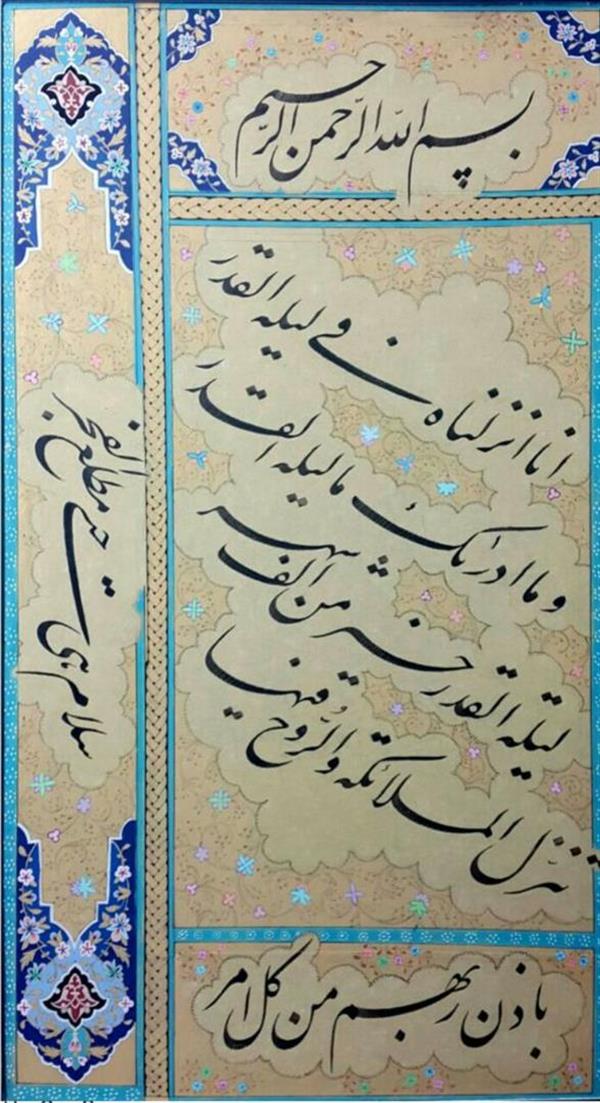 بسم الله الرحمن الرحیم
انا انزلناه فی لیله القدر
و ما ادرئک ما لیله القدر
لیله القدر خیر من الف شهر
تنزل الملائکه والرُوح فیها
باذن ربهم من کل امر
سلام هی حتی مطلع الفجر